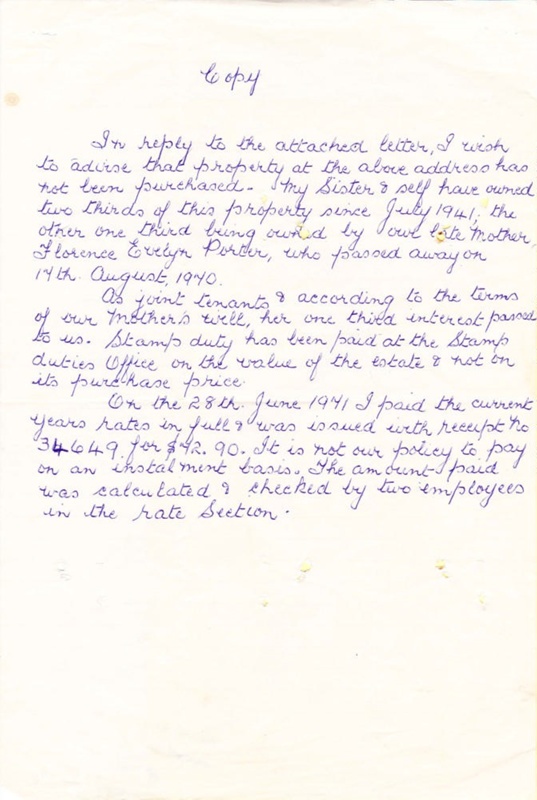 Copy
In reply to the attached letter, I wish
to advise that property at the above address has
not been purchased - My Sister & self have owned
two thirds of this property since July 1941; the
other one third being owned by our late Mother,
Florence Evelyn Porter, who passed away on
17th. August, 1970.
As joint tenants & according to the terms
of our Mother's will, her one third interest passed
to us. Stamp duty has been paid at the Stamp
duties Office on the value of the estate & not on
its purchase price.
On the 28th. June 1971 I paid the current
years rates in full & was issued with receipt No
34649 for $72.90. It is not our policy to pay
on an instalment basis. The amount paid
was calculated & checked by two employees
in the rate Section.